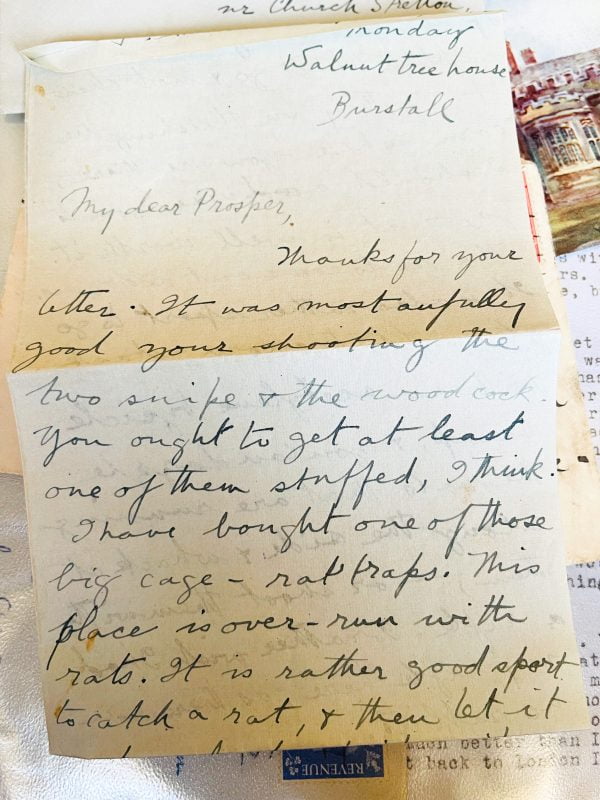 nr Church Stretton.
Monday
Walnut tree house
Burstall
My dear Prosper,
Thanks for your
letter. It was most awfully
good your shooting the
two snipe & the woodcock.
You ought to get at least
one of them stuffed, I think.-
I have bought one of those
big cage - rat traps. This
place is over-run with
rats. It is rather good sport
to catch a rat, & then let it
much better than I
t back to London I
REVENUE